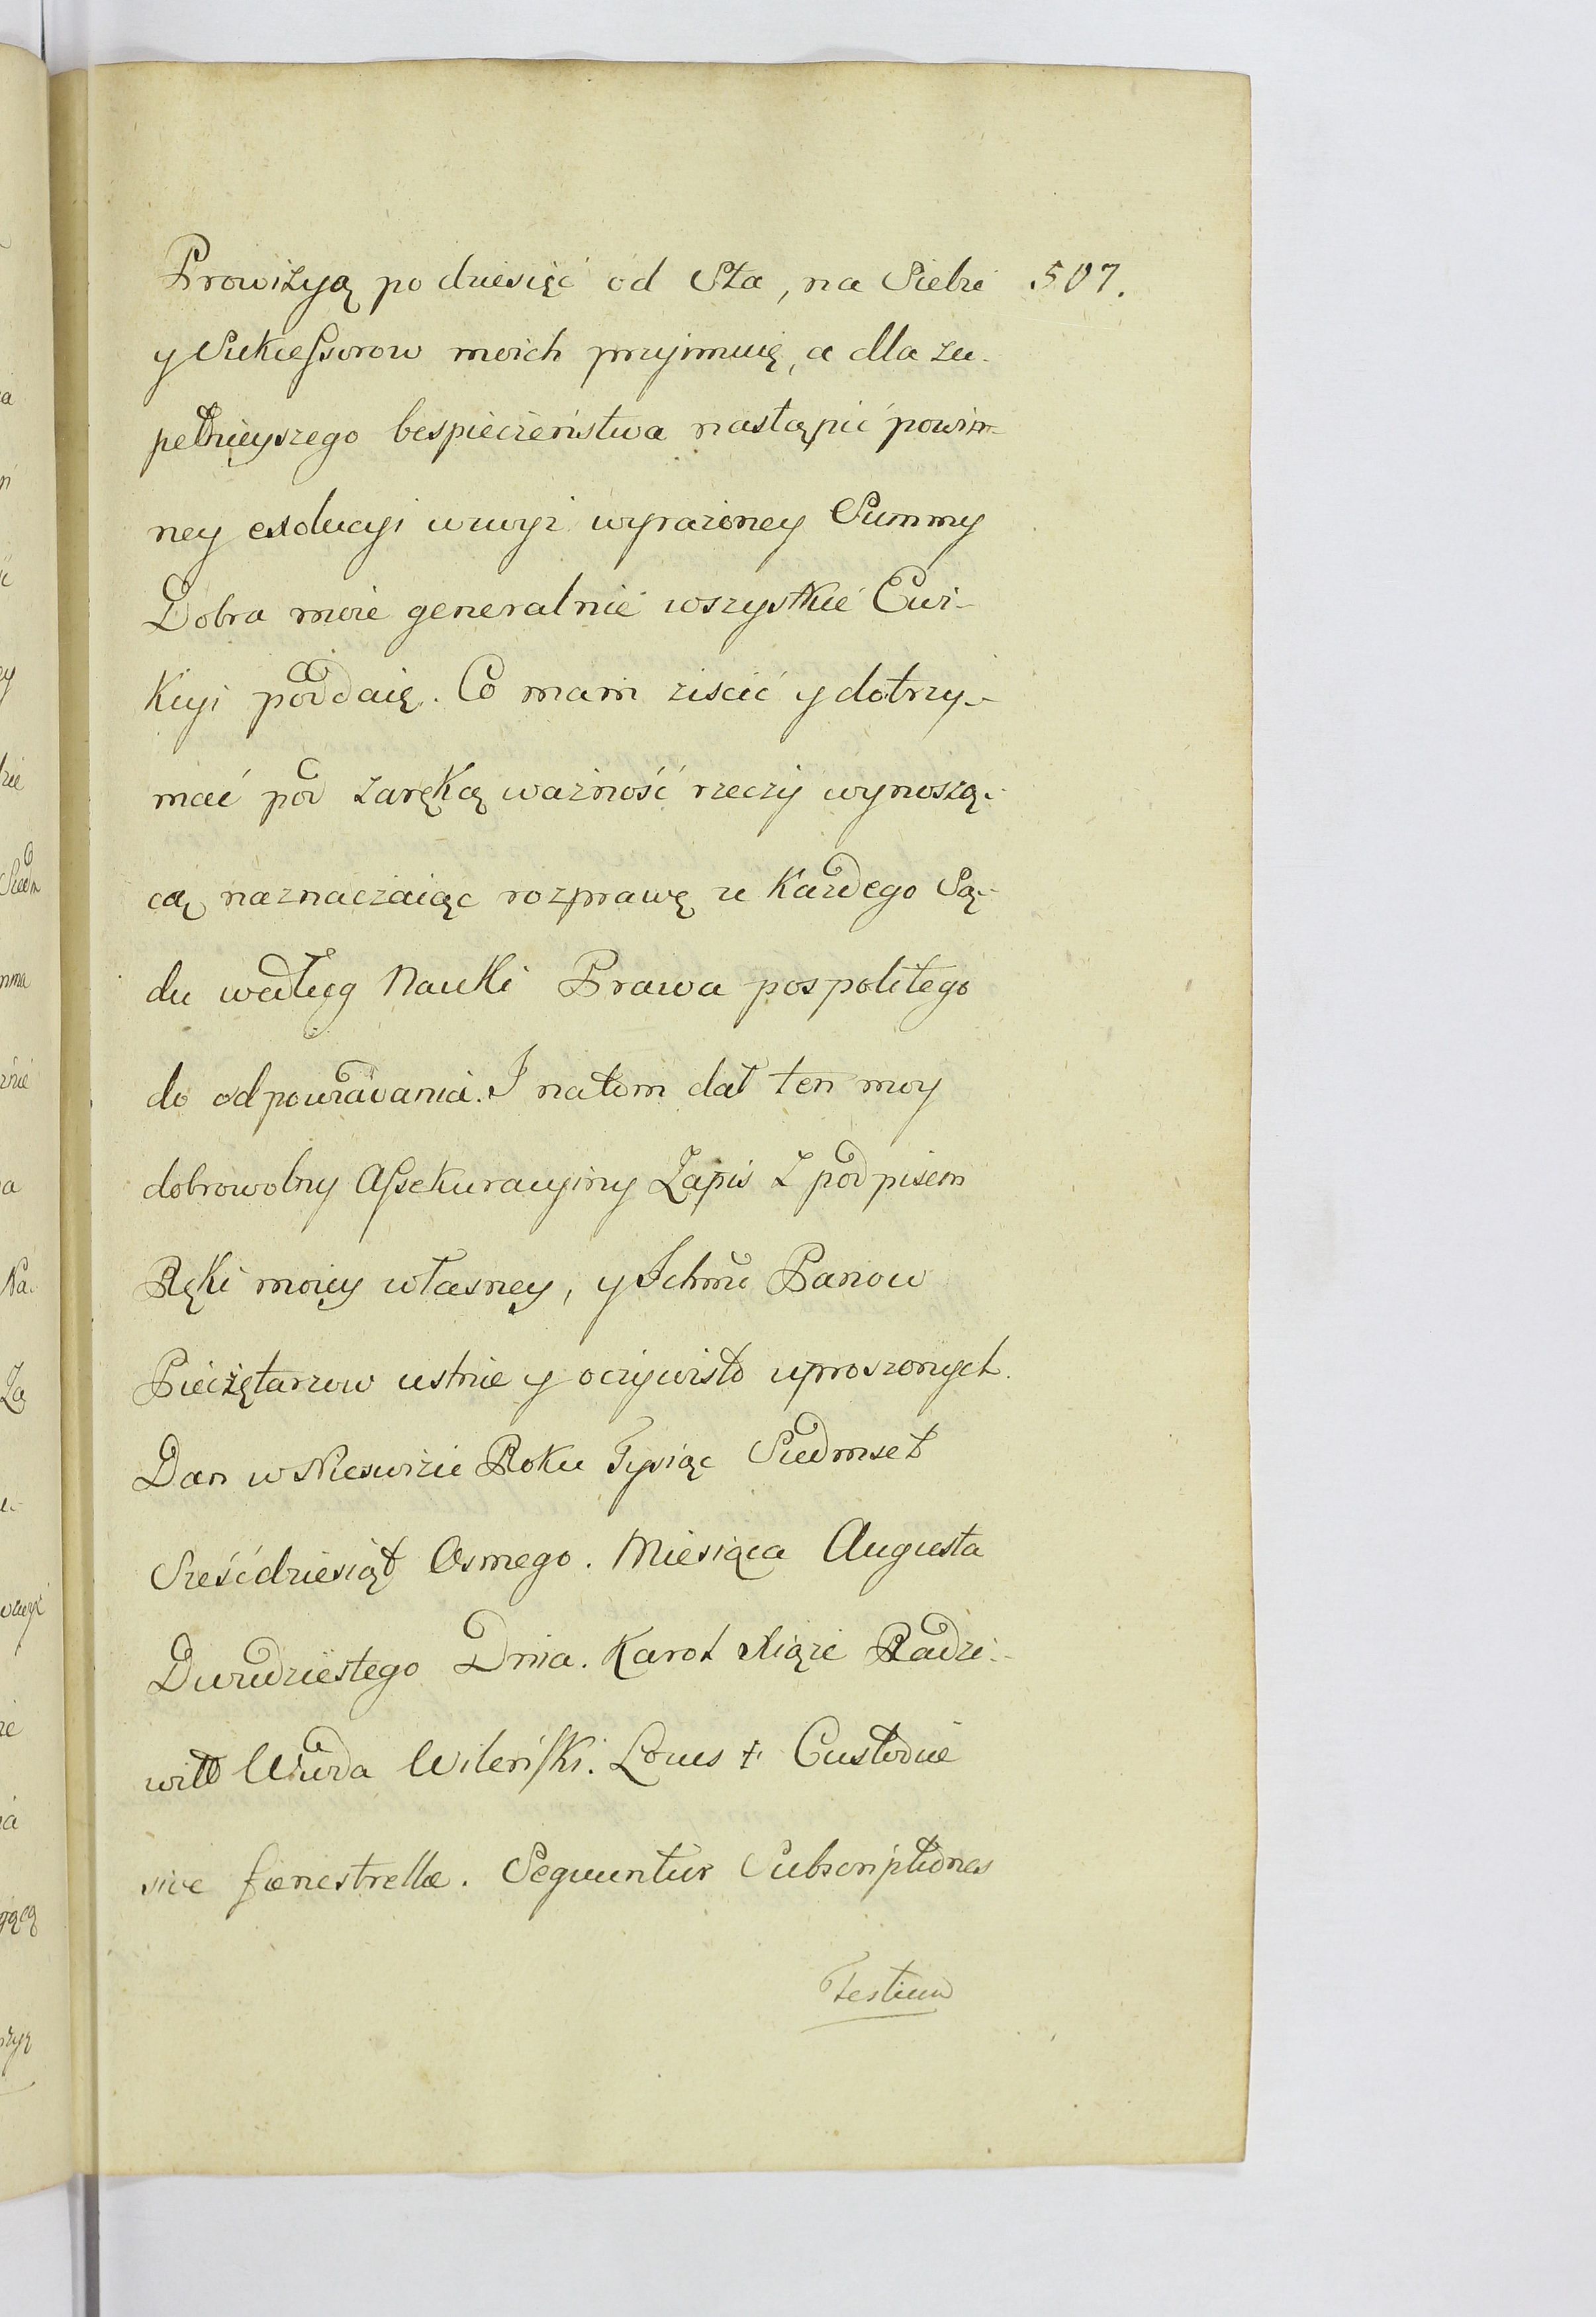 Prowizyą po dziesięć od Sta, na Siebie 507.
y Sukcessorow moich przyimuię, a dla zu-
pełnieyszego bespieczeństwa nastąpić powin-
ney exolucyi wzwyż wyrażoney Summy
Dobra moie generalnie wszystkie Ewi-
kcyi poddaię. Co mam ziscić y dotrzy-
mać pod zaręką ważność rzeczy wynoszą-
cą naznaczaiąc rozprawę u Każdego Są-
du według Nauki Prawa pospolitego
do odpowiadania. I natom dał ten moy
dobrowolny Assekuracyiny Zapis z podpisem
Ręki moiey własney, y Ichmć Panow
Pieczętarzow ustnie y oczywisto uproszonych.
Dan w Nieswiżu Roku Tysiąc Siedmset
Sześćdziesiąt Osmego. Miesiąca Augusta
Dwudziestego Dnia. Karol Xiąże Radzi-
wiłł Wwda Wileński. Locus + Custodiæ
sive fænestrellæ. Sequuntur Subscriptiones
Testium